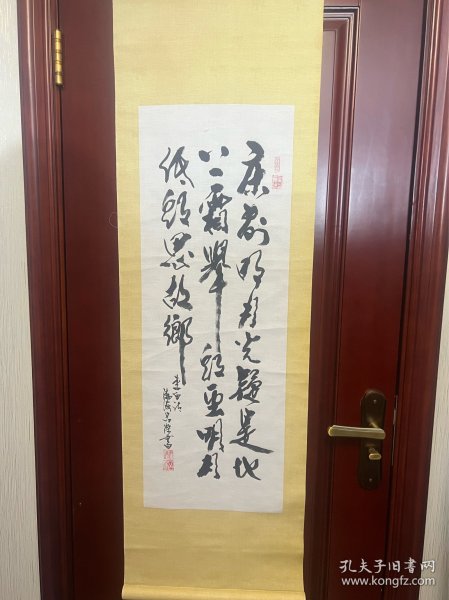 床前明月光疑是地
上霜舉頭望明月
低頭思故鄉
李白诗
孔夫子旧书网
www.kongfz.com